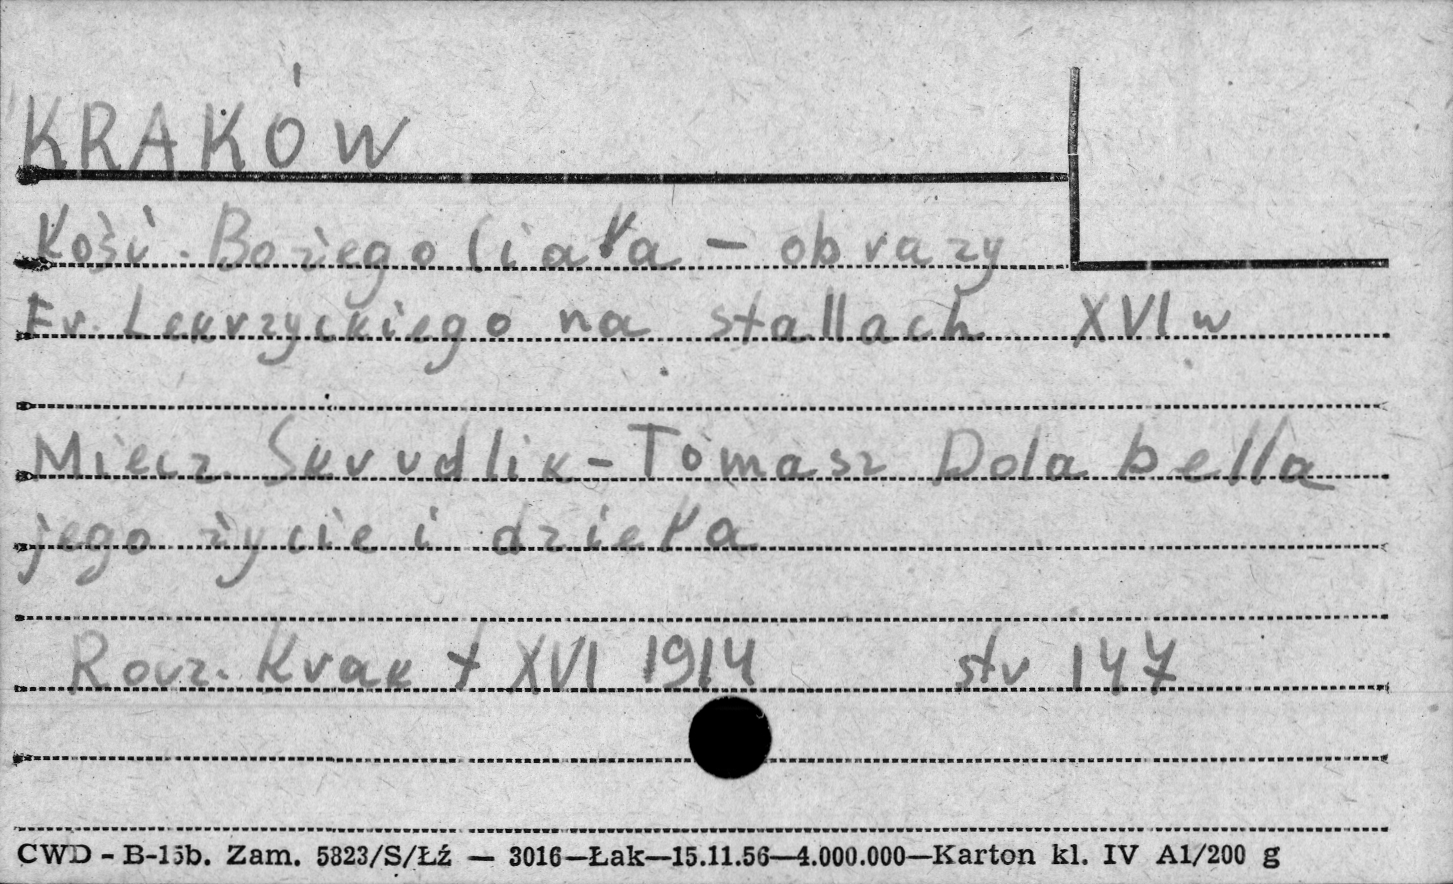 KRAKÓW
Kość. Bożego Ciała – obrazy
Fr. Lekrzyckiego na stallach XVI w
Miecz. Skrudlik – Tomasz Dolabella
jego życie i dzieła
Rocz. Krak t XVI 1914 str 147
CWD - B-15b. Zam. 5823/S/Łź — 3016—Łak—15.11.56—4.000.000—Karton kl. IV A1/200 g